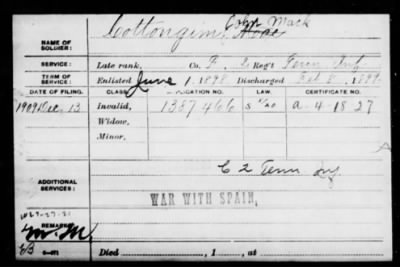 John Mack
NAME OF SOLDIER: Cottongim,
SERVICE: Late rank, Co. F, 2 Reg't Tenn Inf
TERM OF SERVICE: Enlisted June 1, 1898 Discharged Feb 8, 1899
DATE OF FILING. CLASS. APPLICATION NO. LAW. CERTIFICATE NO.
1909 Dec. 13 Invalid, 1387466 a-4-18-27
Widow,
Minor,
C 2 Tenn Inf
ADDITIONAL SERVICES:
WAR WITH SPAIN,
REMARKS:
Died , 1 , at